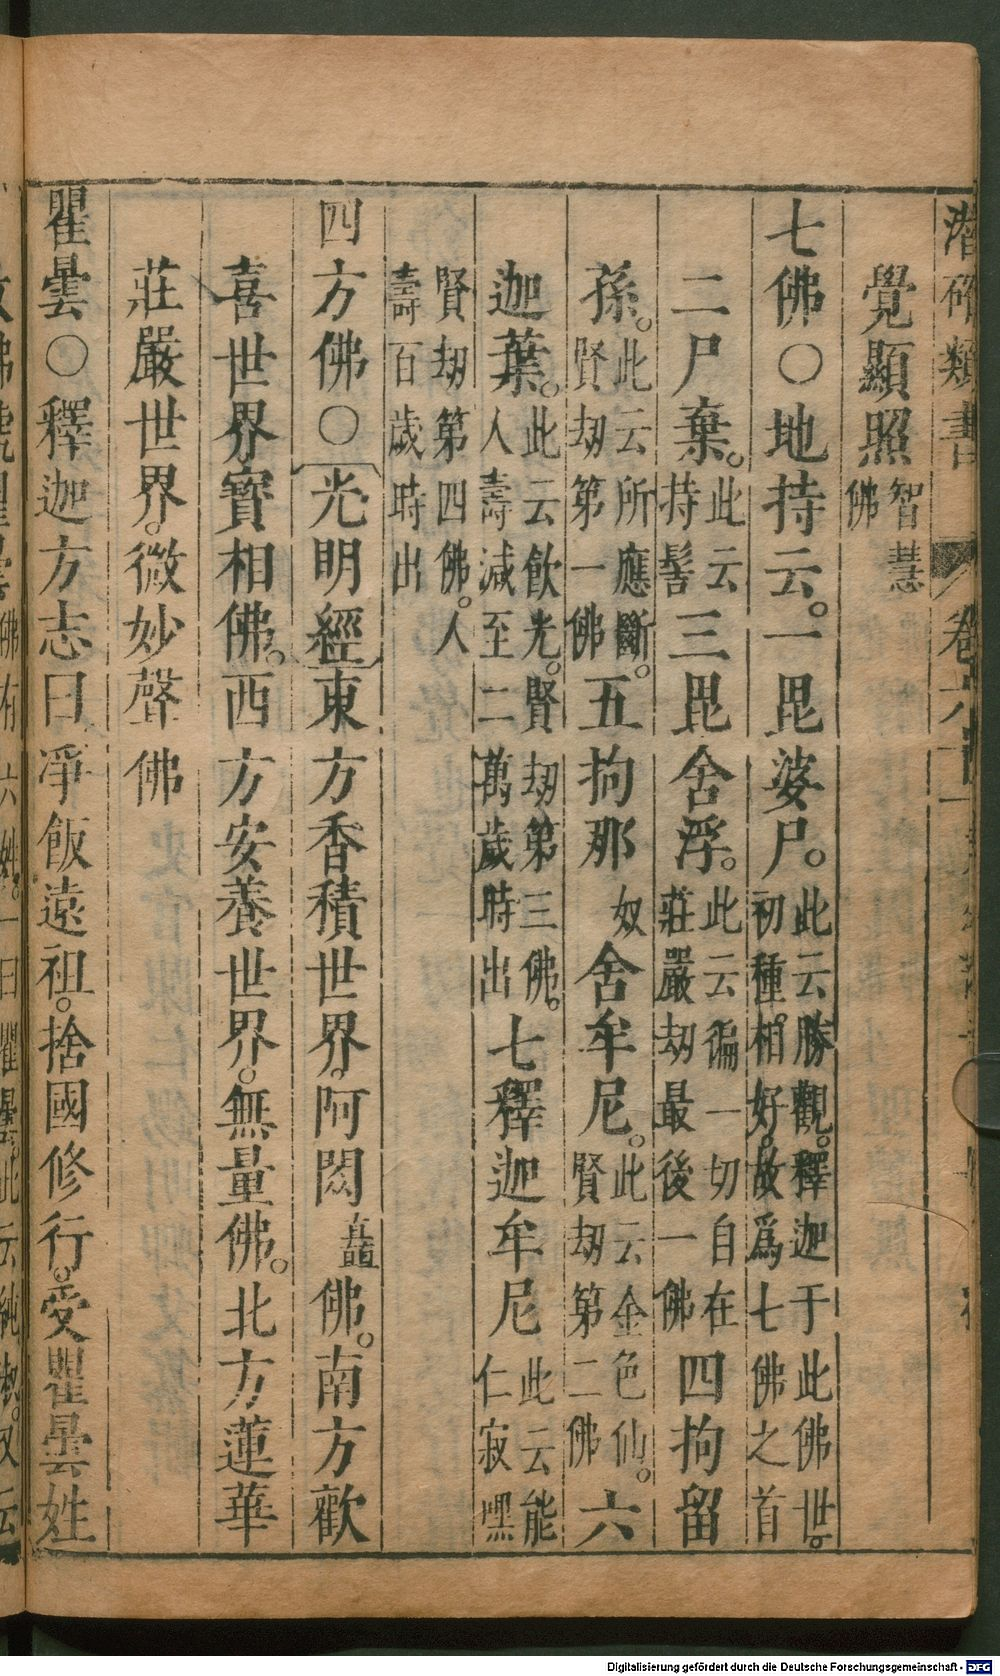 潛確類書 卷六十一
覺顯照智慧佛
七佛〇地持云。一毘婆尸。此云勝觀。釋迦于此佛世。初種相好。故爲七佛之首
二尸棄。此云持髻三毘舍浮。此云徧一切自在莊嚴劫最後一佛四拘留
孫。此云所應斷。賢劫第一佛五拘那奴舍牟尼。此云金色仙。賢劫第二佛六
迦葉。此云飲光。賢劫第三佛。人壽減至二萬歲時出七釋迦牟尼此云能仁寂嘿
賢劫第四佛。人壽百歲時出
四方佛〇光明經東方香積世界。阿閦矗佛。南方歡
喜世界寶相佛。西方安養世界。無量佛。北方蓮華
莊嚴世界。微妙聲佛
瞿曇〇釋迦方志曰淨飯遠祖。捨國修行。受瞿曇姓
佛有六姓。一曰瞿曇。此云純淑。又云
Digitalisierung gefördert durch die Deutsche Forschungsgemeinschaft - DFG